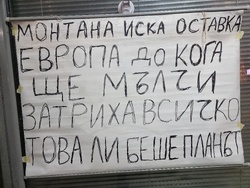 МОНТАНА ИСКА ОСТАВКА
ЕВРОПА ДО КОГА
ЩЕ МЪЛЧИ
ЗАТРИХА ВСИЧКО
ТОВА ЛИ БЕШЕ ПЛАНЪТ